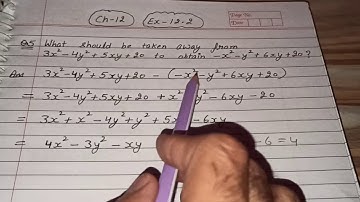 Ch-12
Ex-12.2
Q5 What should be taken away from
3x²-4y²+5xy+20 to obtain -x²-y²+6xy+20?
Ans 3x²-4y²+5xy+20 - (-x²-y²+6xy+20)
= 3x²-4y²+5xy+20+x² -6xy-20
= 3x²+x²-4y²+y²+5x -6xy
= 4x²-3y²-xy -6=4